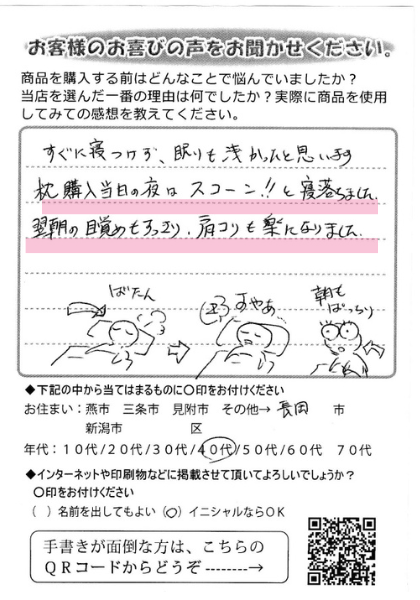 お客様のお喜びの声をお聞かせください。
商品を購入する前はどんなことで悩んでいましたか？
当店を選んだ一番の理由は何でしたか？実際に商品を使用
してみての感想を教えてください。
すぐに寝つけず、眠りも浅かったと思います
枕購入当日の夜は スコーン!! と寝落ちました
翌朝の目覚めもすっきり、肩コリも楽になりました
ばたん
すやぁ
朝も
ぱっちり
◆下記の中から当てはまるものに〇印をお付けください
お住まい：燕市 三条市 見附市 その他→ 長岡 市
新潟市 区
年代：１０代/２０代/３０代/４０代/５０代/６０代 ７０代
◆インターネットや印刷物などに掲載させて頂いてよろしいでしょうか？
〇印をお付けください
（ ）名前を出してもよい（〇）イニシャルならＯＫ
手書きが面倒な方は、こちらの
ＱＲコードからどうぞ--------→